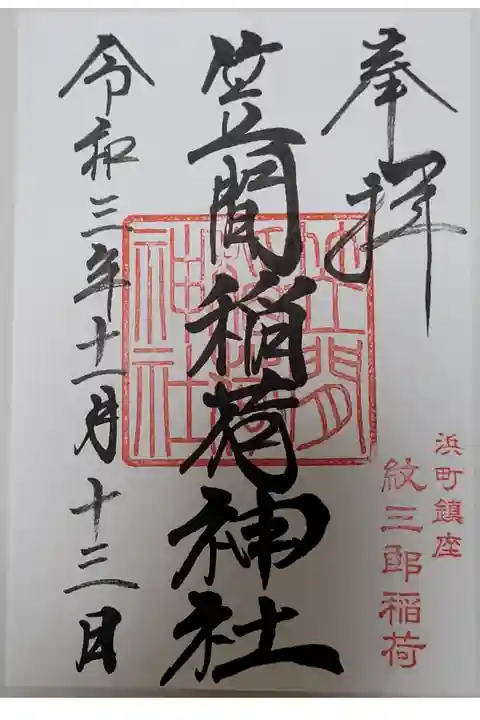 奉拝
浜町鎮座
紋三郎稲荷
笠間稲荷神社
笠間稲荷神社
令和三年十一月十三日